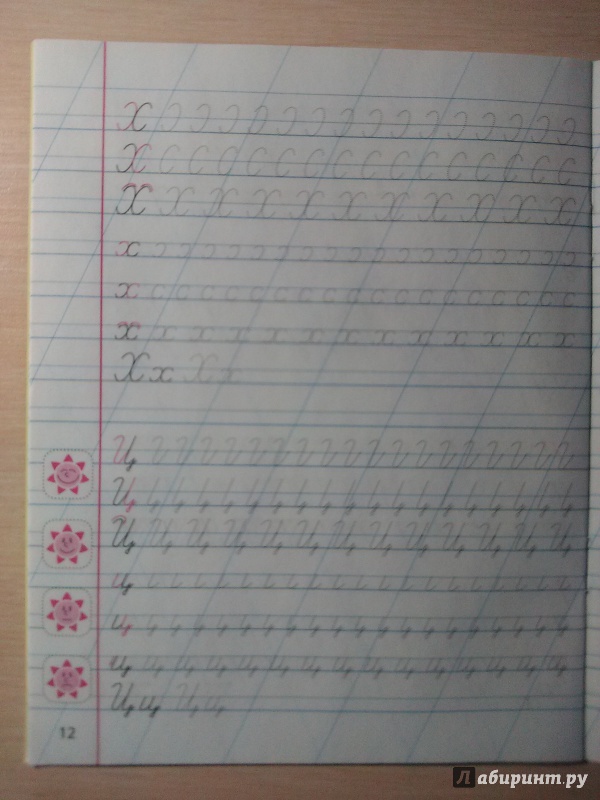 Х Ɔ Ɔ Ɔ Ɔ Ɔ Ɔ Ɔ Ɔ Ɔ Ɔ Ɔ Ɔ Ɔ Ɔ Ɔ
Х С С С С С С С С С С С С С С С
Х Х Х Х Х Х Х Х Х Х Х
х ɔ ɔ ɔ ɔ ɔ ɔ ɔ ɔ ɔ ɔ ɔ ɔ ɔ ɔ ɔ ɔ ɔ ɔ
х с с с с с с с с с с с с с с с с с с
х х х х х х х х х х х х х
Хх Хх
Ц
Ц
Ц Ц Ц Ц Ц Ц Ц Ц Ц Ц Ц Ц Ц
ц
ц
ц ц ц ц ц ц ц ц ц ц ц ц ц ц
Цц Цц
12
Лабиринт.ру